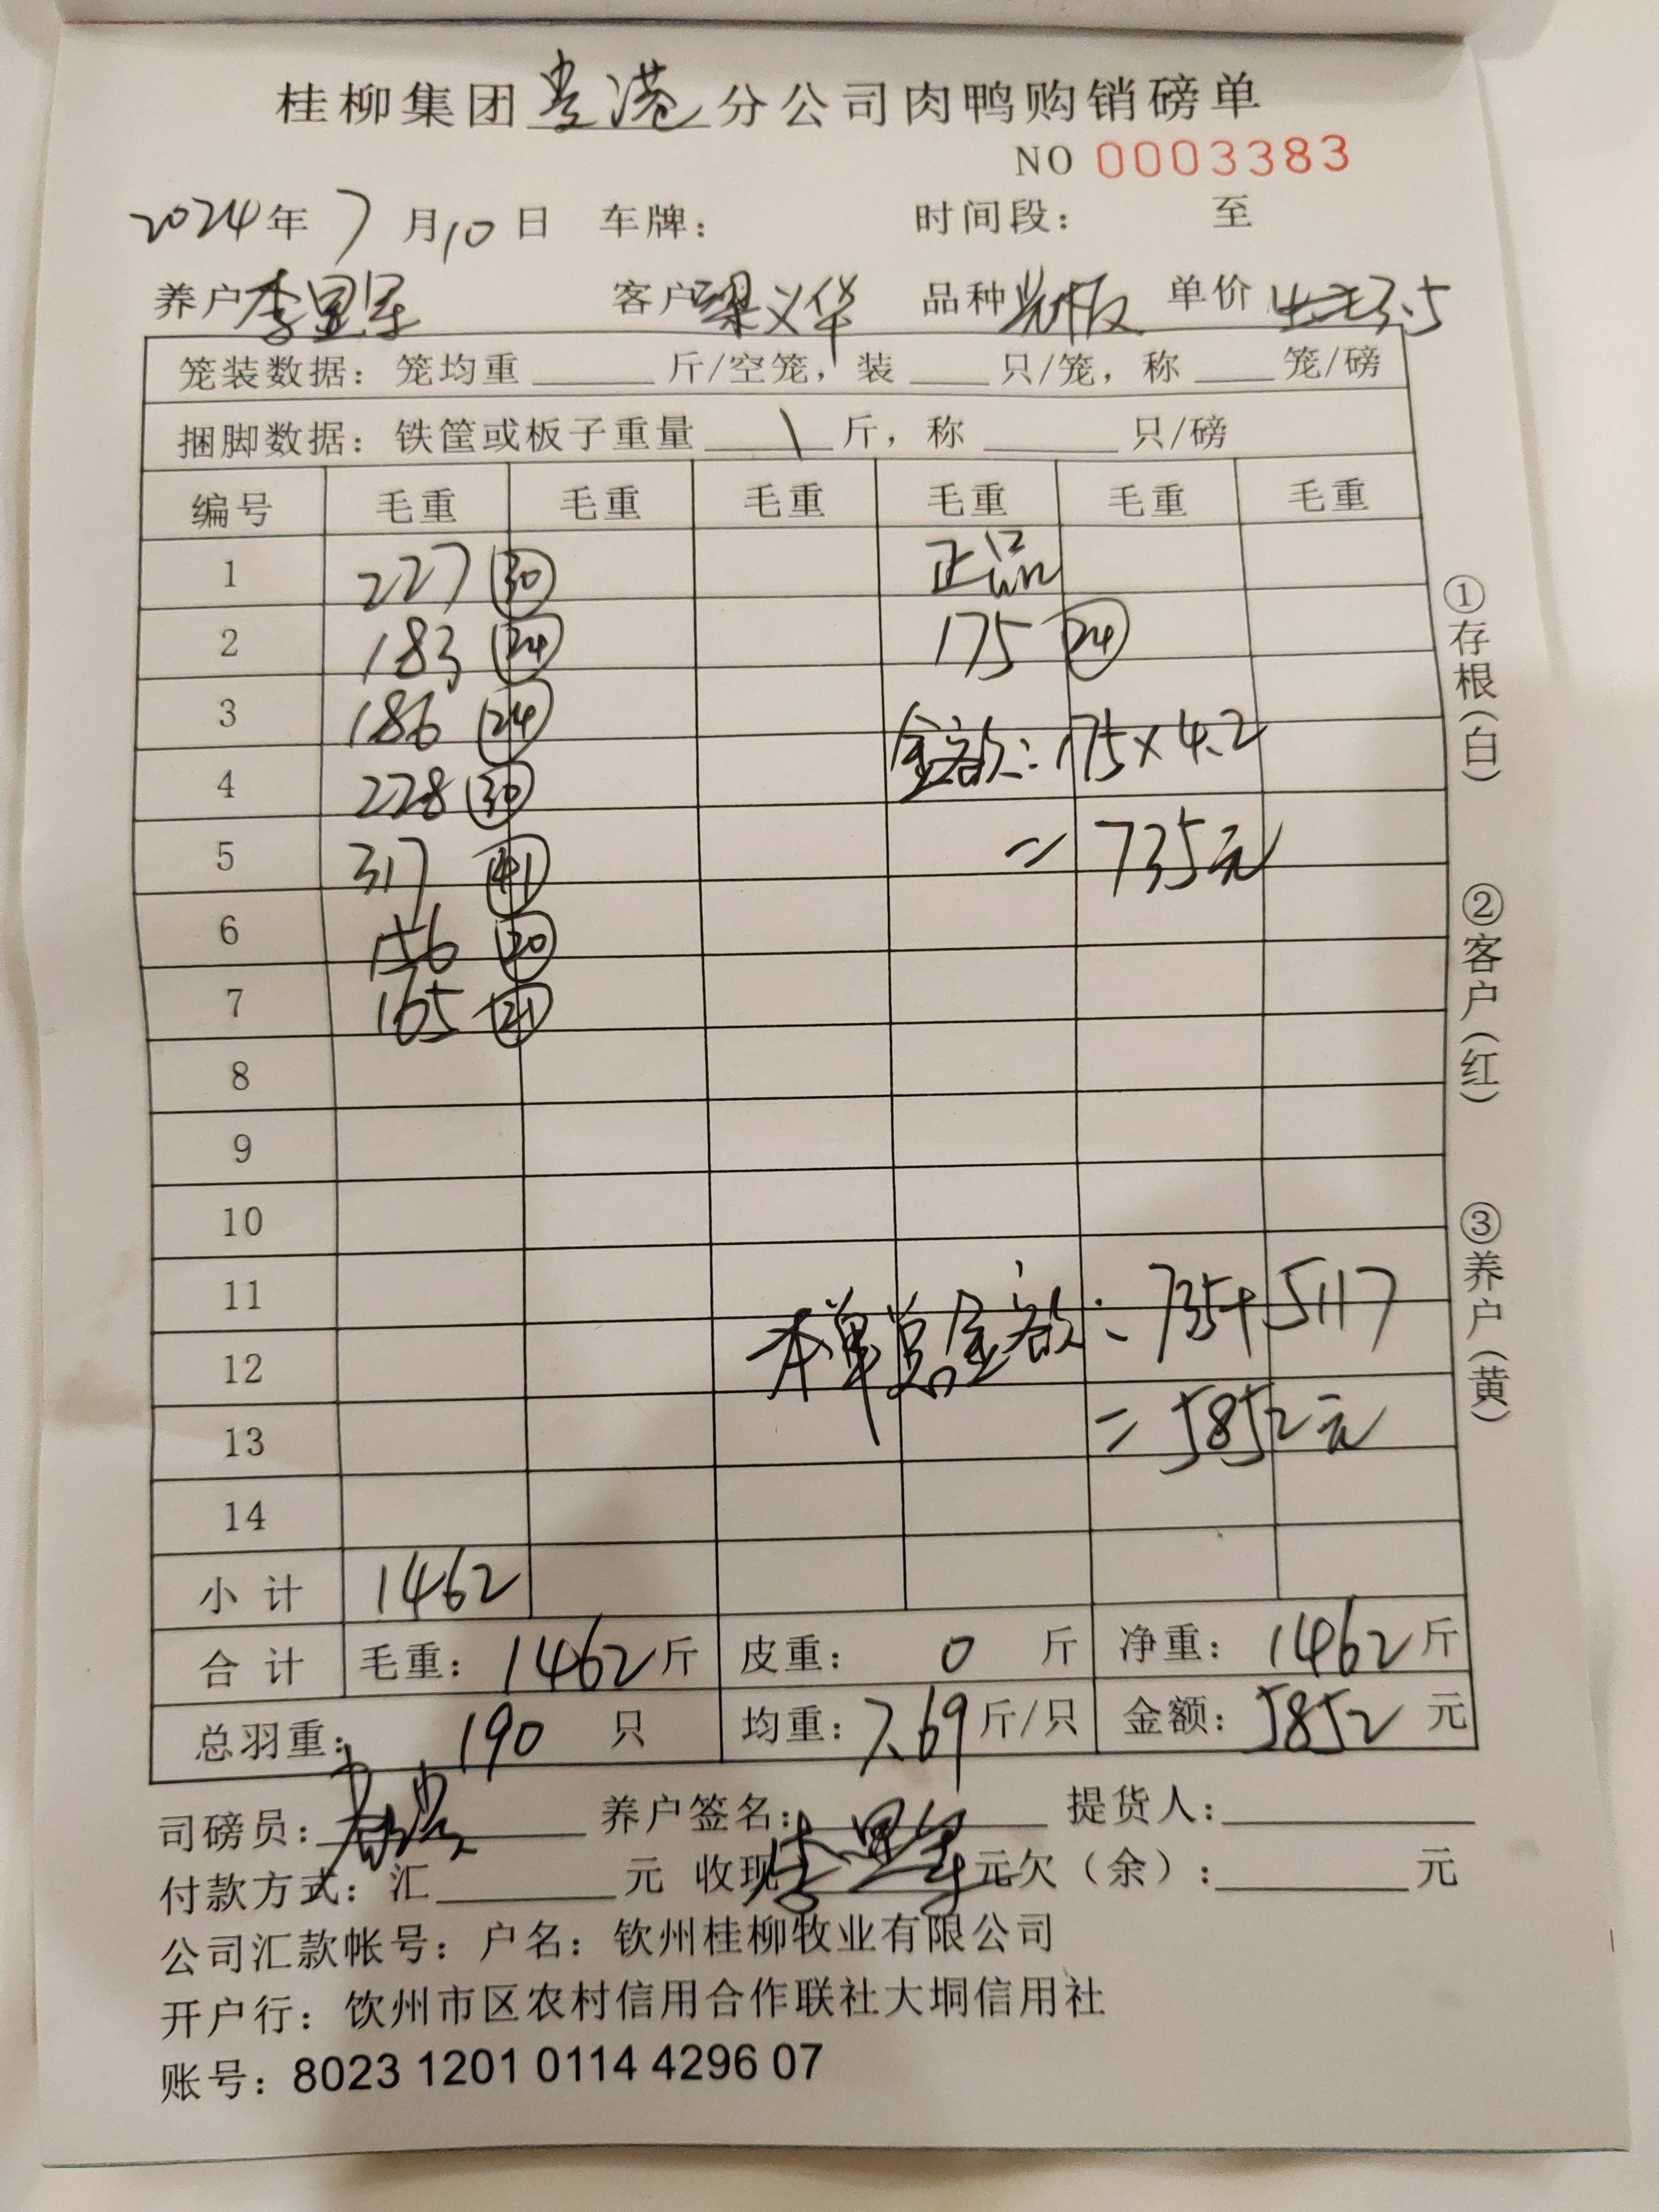 桂柳集团贵港分公司肉鸭购销磅单
NO 0003383
2024年7月10日 车牌： 时间段： 至
养户李显军 客户梁义华 品种光板 单价 3.5
笼装数据：笼均重 斤/空笼，装 只/笼，称 笼/磅
捆脚数据：铁筐或板子重量 \ 斤，称 只/磅
编号 毛重 毛重 毛重 毛重 毛重 毛重
1 227 30 正品
2 183 24 175 24
3 186 24 金额：175×4.2
4 228 30
5 317 41 = 735元
6 156 20
7 165 21
8
9
10
11 本单总金额：735+5117
12
13 = 5852元
14
小计 1462
合计 毛重：1462斤 皮重：0 斤 净重：1462斤
总羽重：190 只 均重：7.69斤/只 金额：5852 元
司磅员： 养户签名：李显军 提货人：
付款方式：汇 元 收现 元欠（余）： 元
公司汇款帐号：户名：钦州桂柳牧业有限公司
开户行：钦州市区农村信用合作联社大垌信用社
账号：8023 1201 0114 4296 07
①存根（白）
②客户（红）
③养户（黄）